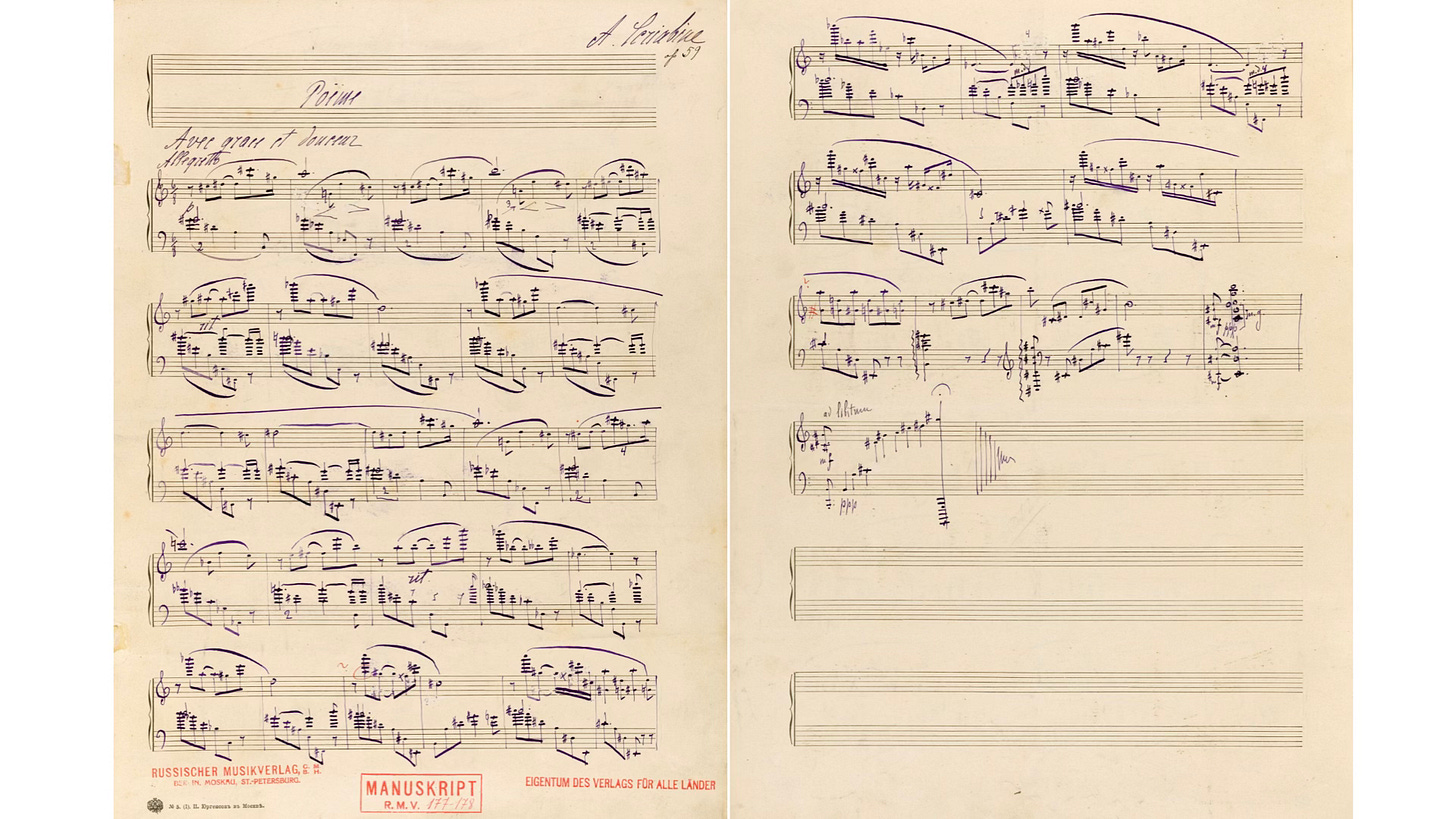 A. Scriabine
op 59
Poème
Avec grace et douceur
Allegretto
rit
rit
RUSSISCHER MUSIKVERLAG, G. M. B. H.
BERLIN, MOSKAU, ST.-PETERSBURG.
MANUSKRIPT
R. M. V. 177-178
EIGENTUM DES VERLAGS FÜR ALLE LÄNDER
№ 5. (I). П. Юргенсонъ въ Москвѣ.
m.g
pp
ad libitum
mf
ppp